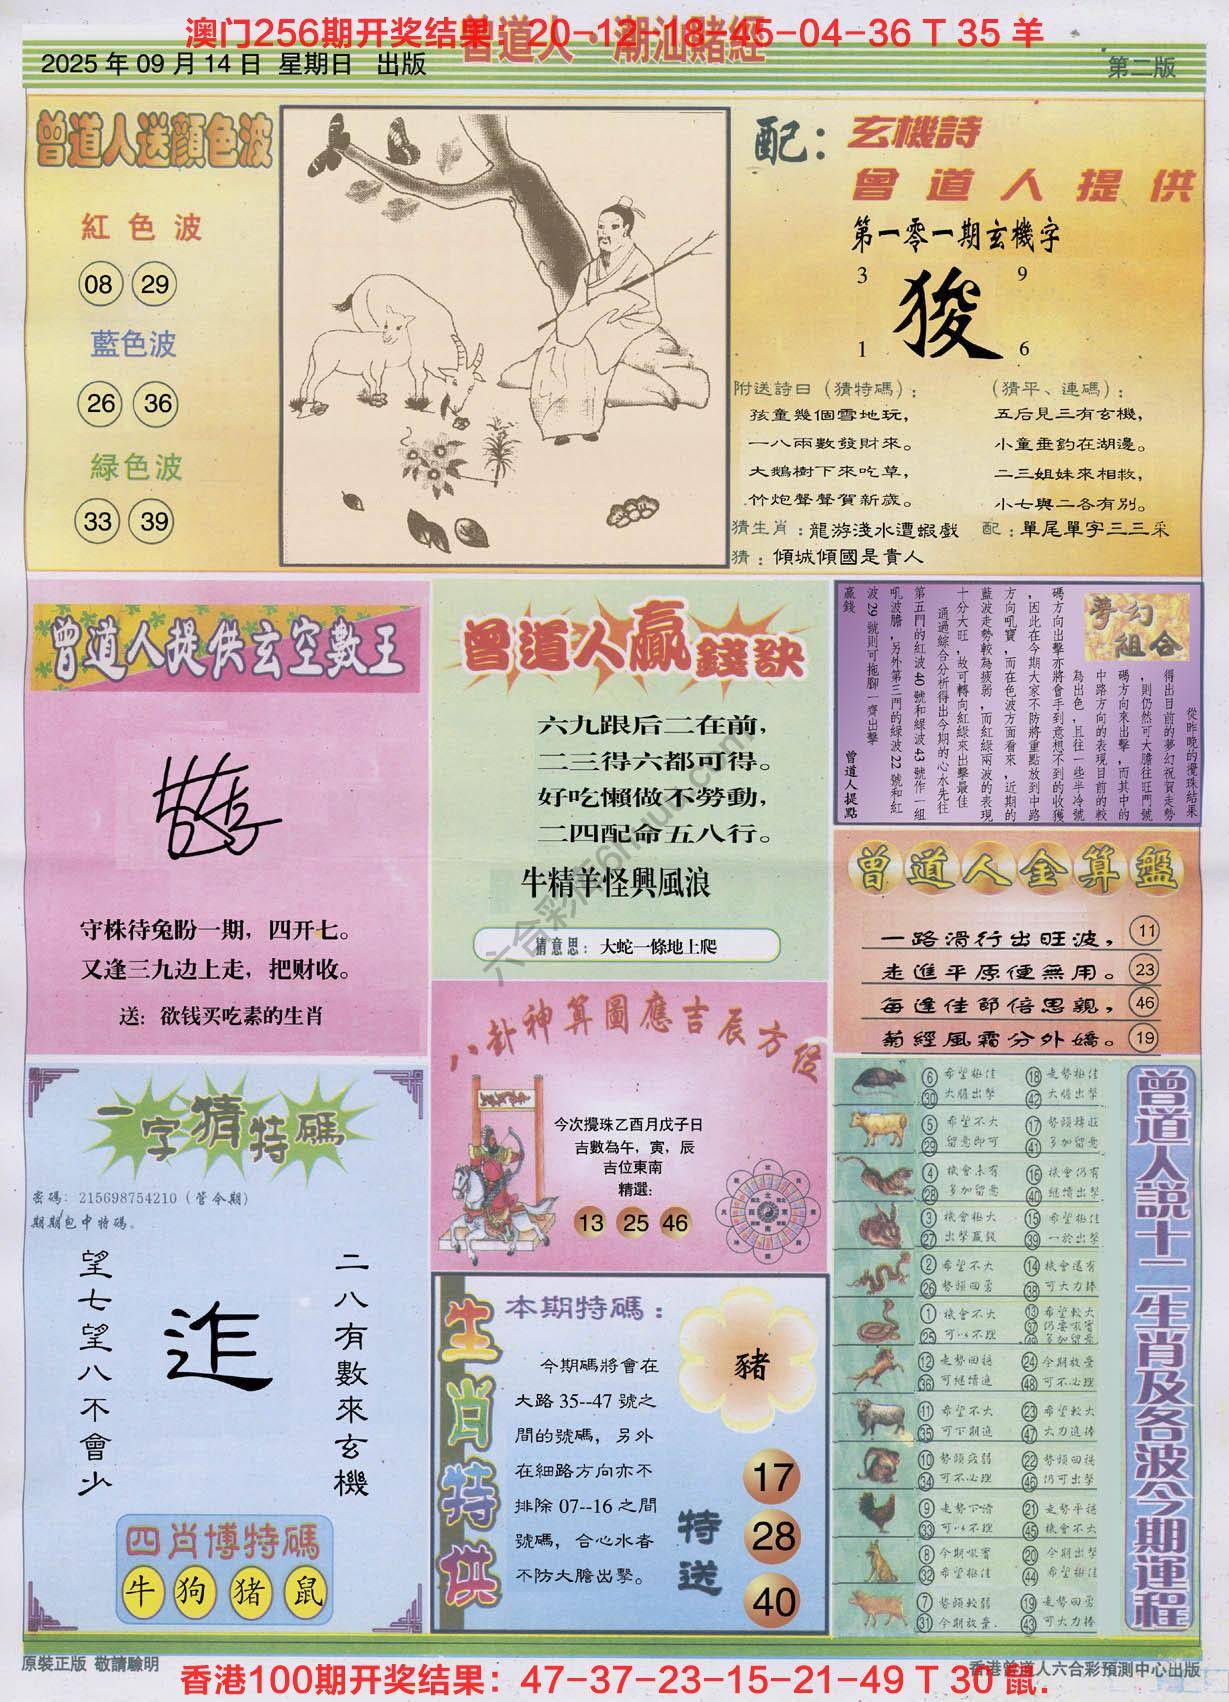 澳门256期开奖结果：20-12-18-45-04-36 T 35 羊
曾道人·潮汕賭經
2025 年 09 月 14 日 星期日 出版
第二版
曾道人送顔色波
紅色波
08 29
藍色波
26 36
緑色波
33 39
配：
玄機詩
曾道人提供
第一零一期玄機字
3 9
狻
1 6
附送詩曰（猜特碼）：
孩童幾個雪地玩，
一八兩數發財來。
大鵝樹下來吃草，
竹炮聲聲賀新歲。
（猜平、連碼）：
五后見三有玄機，
小童垂釣在湖邊。
二三姐妹來相救，
小七與二各有別。
猜生肖：龍游淺水遭蝦戲
配：單尾單字三三采
猜：傾城傾國是貴人
曾道人提供玄空數王
守株待兔盼一期，四开七。
又逢三九边上走，把财收。
送：欲钱买吃素的生肖
曾道人贏錢訣
六九跟后二在前，
二三得六都可得。
好吃懶做不勞動，
二四配命五八行。
牛精羊怪興風浪
猜意思：大蛇一條地上爬
夢幻組合
從昨晚的攪珠結果
得出目前的夢幻祝賀走勢
，則仍然可大膽往旺門號
碼方向來出擊，而其中的
中路方向的表現目前的較
為出色，且往一些半冷號
碼方向出擊亦將會手到意想不到的收獲
，因此在今期大家不防將重點放到中路
方向吼寶，而在色波方面看來，近期的
藍波走勢較為疲弱，而紅綠兩波的表現
十分大旺，故可轉向紅綠來出擊最佳
通過綜合分析得出今期的心水先往
第五門的紅波40號和綠波43號作一組
吼波膽，另外第三門的綠波22號和紅
波29號則可拖腳一齊出擊
贏錢
曾道人提點
曾道人金算盤
一路滑行出旺波， 11
走進平原便無用。 23
每逢佳節倍思親， 46
菊經風霜分外嬌。 19
八卦神算圖應吉辰方位
今次攪珠乙酉月戊子日
吉數為午，寅，辰
吉位東南
精選：
13 25 46
一字猜特碼
密碼：215698754210（管今期）
期期包中特碼。
二八有數來玄機
望七望八不會少
四肖博特碼
牛 狗 猪 鼠
生肖特供
本期特碼：
今期碼將會在
大路 35--47 號之
間的號碼，另外
在細路方向亦不
排除 07--16 之間
號碼，合心水者
不防大膽出擊。
豬
特送
17
28
40
曾道人説十二生肖及各波今期運程
6 希望極佳 18 走勢極佳
30 大膽出擊 42 大膽出擊
5 希望不大 17 勢頭轉旺
29 留意即可 41 多加留意
4 機會未有 16 機會仍有
28 多加留意 40 繼續出擊
3 機會極大 15 希望極佳
27 出擊贏錢 39 一於出擊
2 希望不大 14 機會還有
26 勢頭回勇 38 可大力捧
1 機會不大 13 希望較大
25 可以不理 37 仍要吼實
49 多加留意
12 走勢回穩 24 今期放棄
36 可繼續追 48 可不必理
11 希望不大 23 希望較大
35 可下期追 47 大力追捧
10 勢頭疲弱 22 勢頭回穩
34 可不必理 46 仍可出擊
9 走勢下滑 21 走勢平穩
33 可以不理 45 機會不大
8 今期吼實 20 今期出擊
32 希望極佳 44 希望極佳
7 勢頭較弱 19 走勢回勇
31 今期放棄. 43 可大力捧
六合彩库6huu.com
原裝正版 敬請驗明
香港曾道人六合彩預測中心出版
香港100期开奖结果：47-37-23-15-21-49 T 30 鼠.